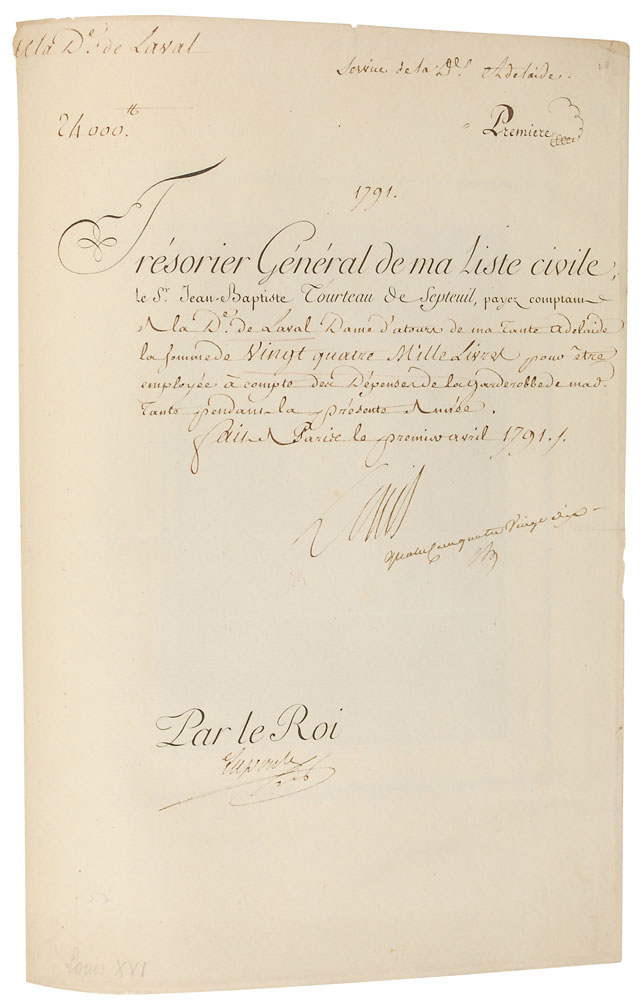 A la De. de Laval
Service de la De. Adelaide.
24000.tt
Premiere
1791.
Trésorier Général de ma Liste civile,
le Sr. Jean-Baptiste Tourteau de Septeuil, payez comptant
A la De. de Laval Dame d'atours de ma Tante adelaide
la somme de Vingt quatre Mille Livres pour être
employée à compte des Dépenses de la Garderobbe de mad.
Tante pendant la présente Année.
Fait A Paris le premier avril 1791.
Louis
quatre vingt dix
Par le Roi
Laporte
Louis XVI